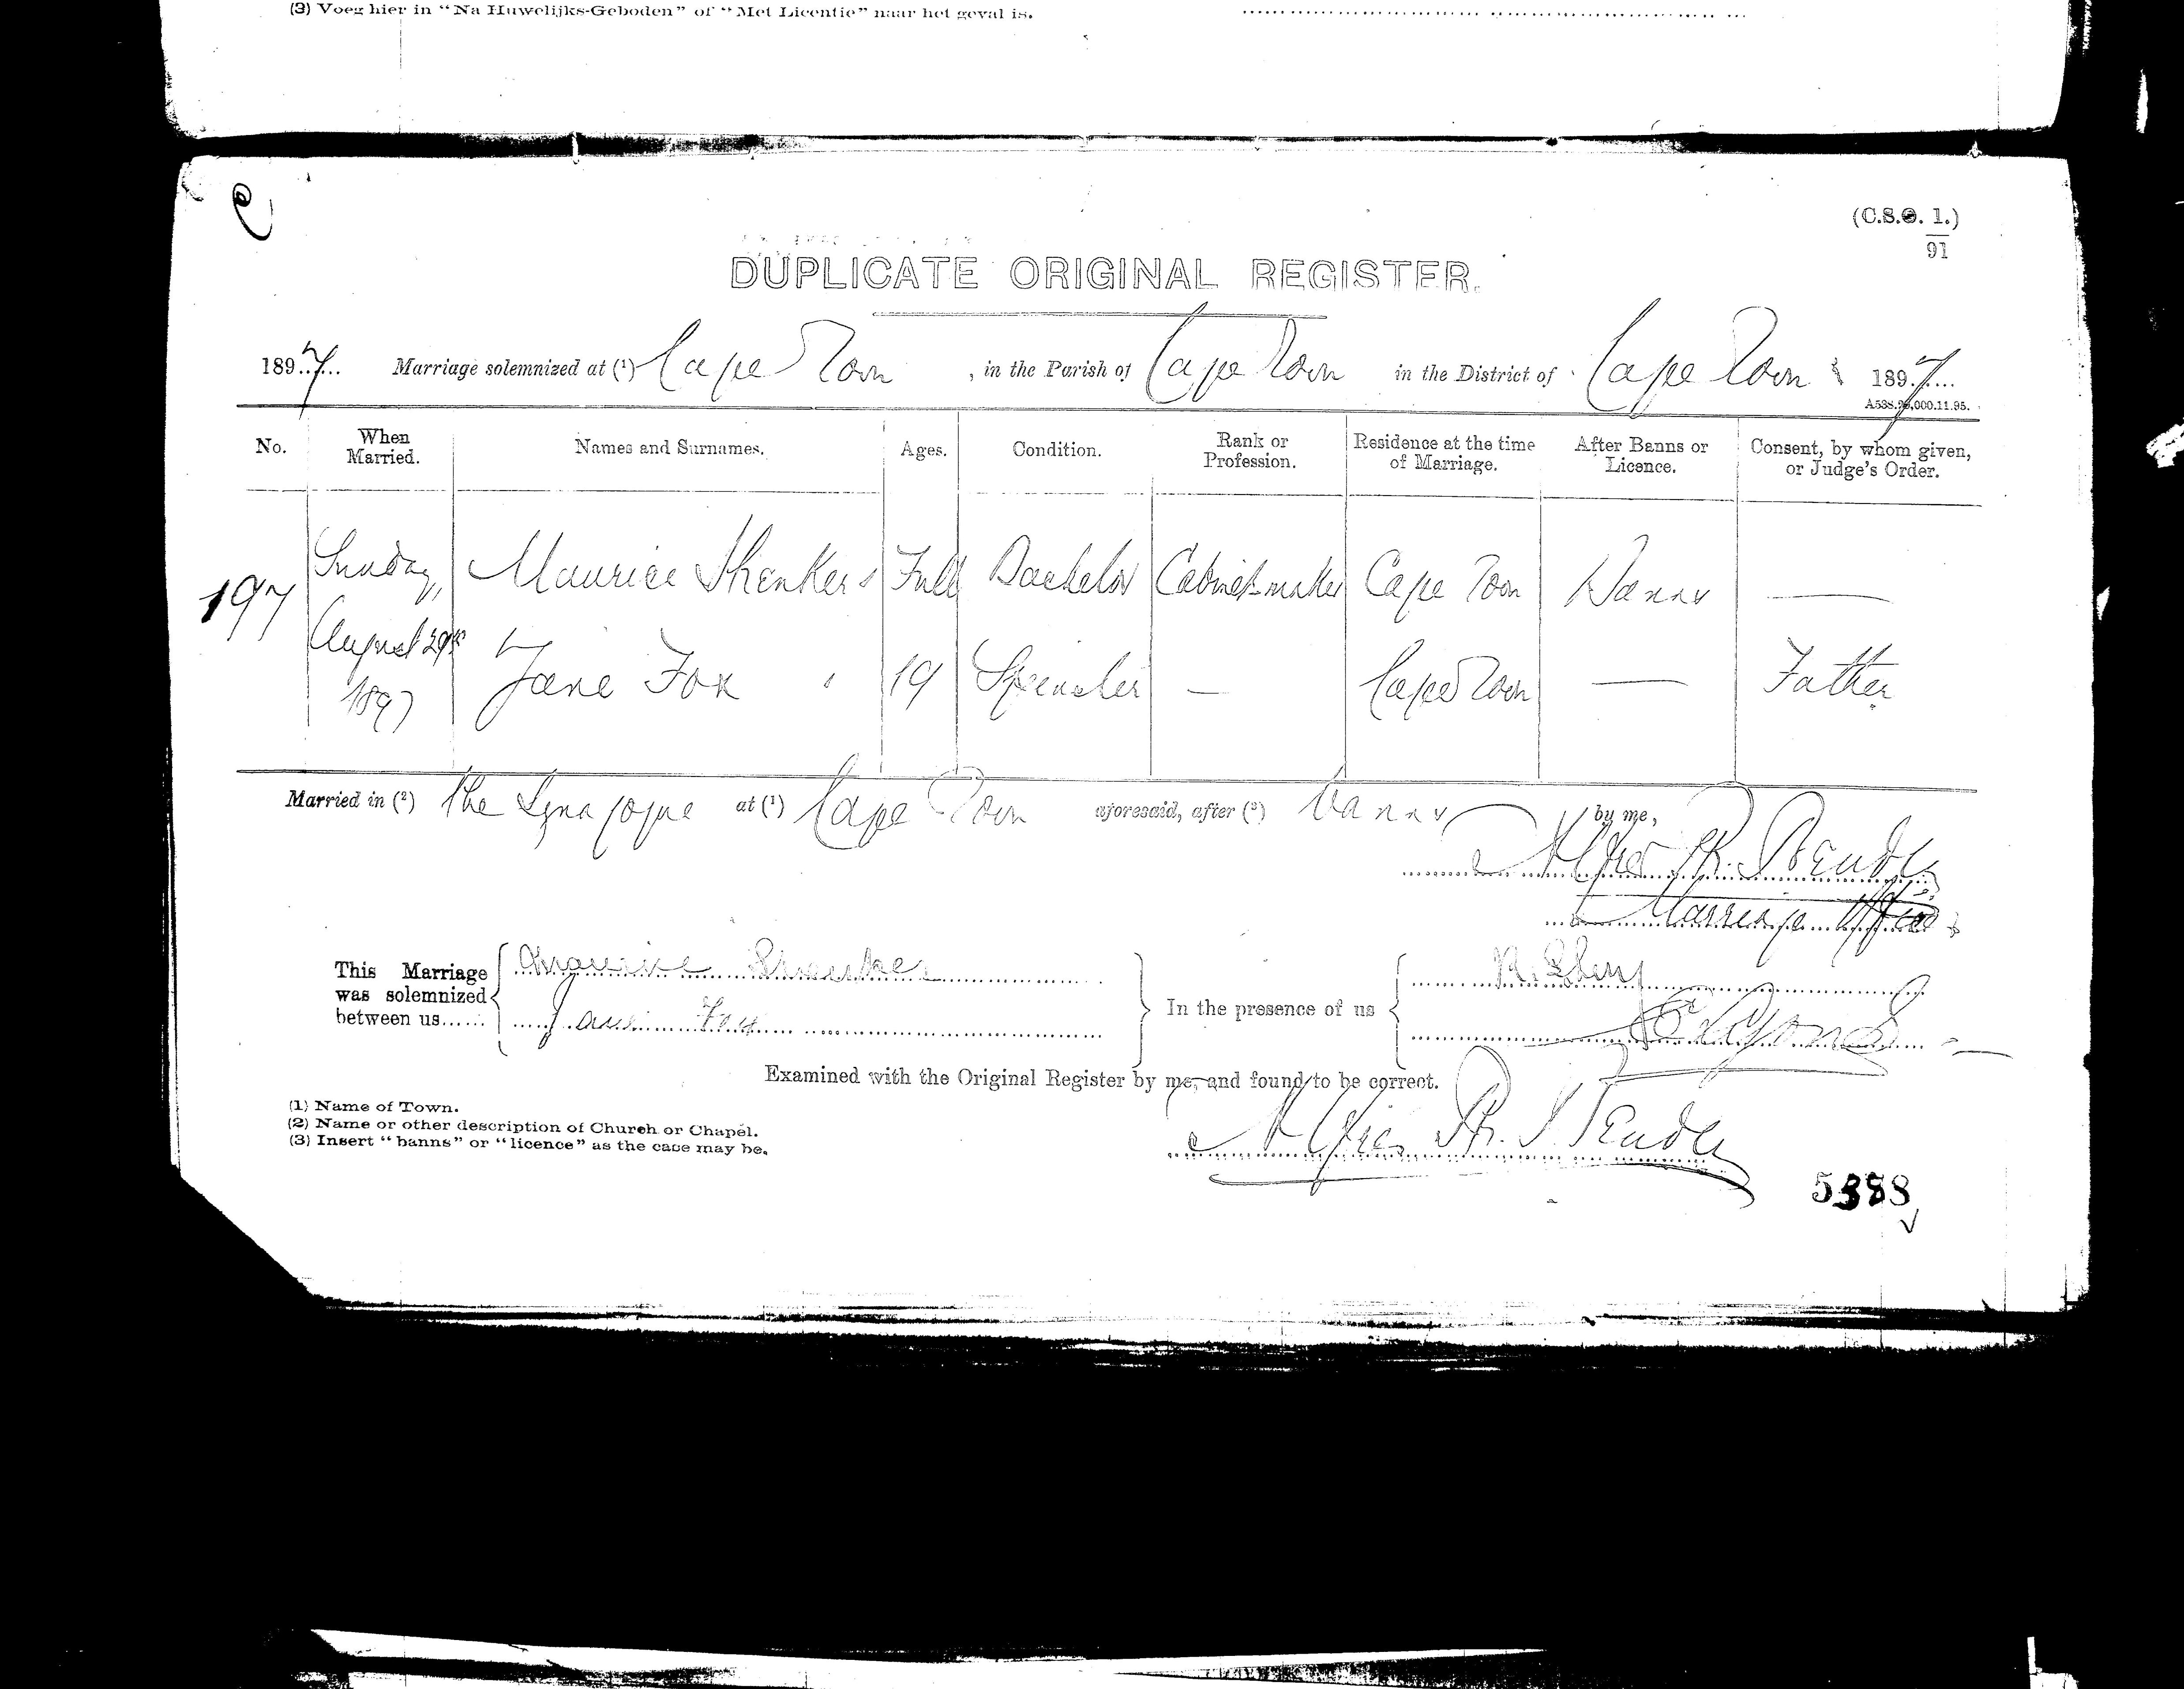 (3) Voeg hier in "Na Huwelijks-Geboden" of "Met Licentie" naar het geval is.
(C.S.O. 1.)
91
DUPLICATE ORIGINAL REGISTER.
1897 Marriage solemnized at (1) Cape Town, in the Parish of Cape Town in the District of Cape Town 1897
No. When Married. Names and Surnames. Ages. Condition. Rank or Profession. Residence at the time of Marriage. After Banns or Licence. Consent, by whom given, or Judge's Order.
197 Sunday, August 29th 1897
Maurice Shenker Full Bachelor Cabinet-maker Cape Town Banns —
Jane Fox 19 Spinster — Cape Town — Father
Married in (2) the Synagogue at (1) Cape Town aforesaid, after (3) banns by me,
Alfred P. Bender
Marriage Officer
This Marriage was solemnized between us...... Maurice Shenker
Jane Fox
In the presence of us
Examined with the Original Register by me, and found to be correct.
Alfred P. Bender
(1) Name of Town.
(2) Name or other description of Church or Chapel.
(3) Insert "banns" or "licence" as the case may be.
5388